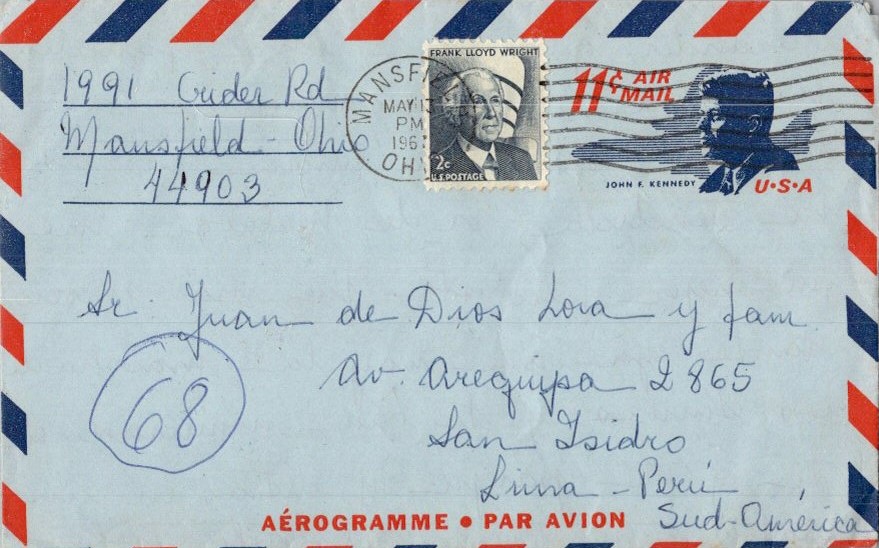 1991 Grider Rd
Mansfield - Ohio
44903
MANSFIE
MAY 13
PM
196
OH
FRANK LLOYD WRIGHT
2c
U.S. POSTAGE
11¢ AIR
MAIL
JOHN F. KENNEDY
U·S·A
Sr. Juan de Dios Lora y fam.
Av. Arequipa 2865
San Isidro
Lima - Perú
Sud-América
68
AÉROGRAMME • PAR AVION